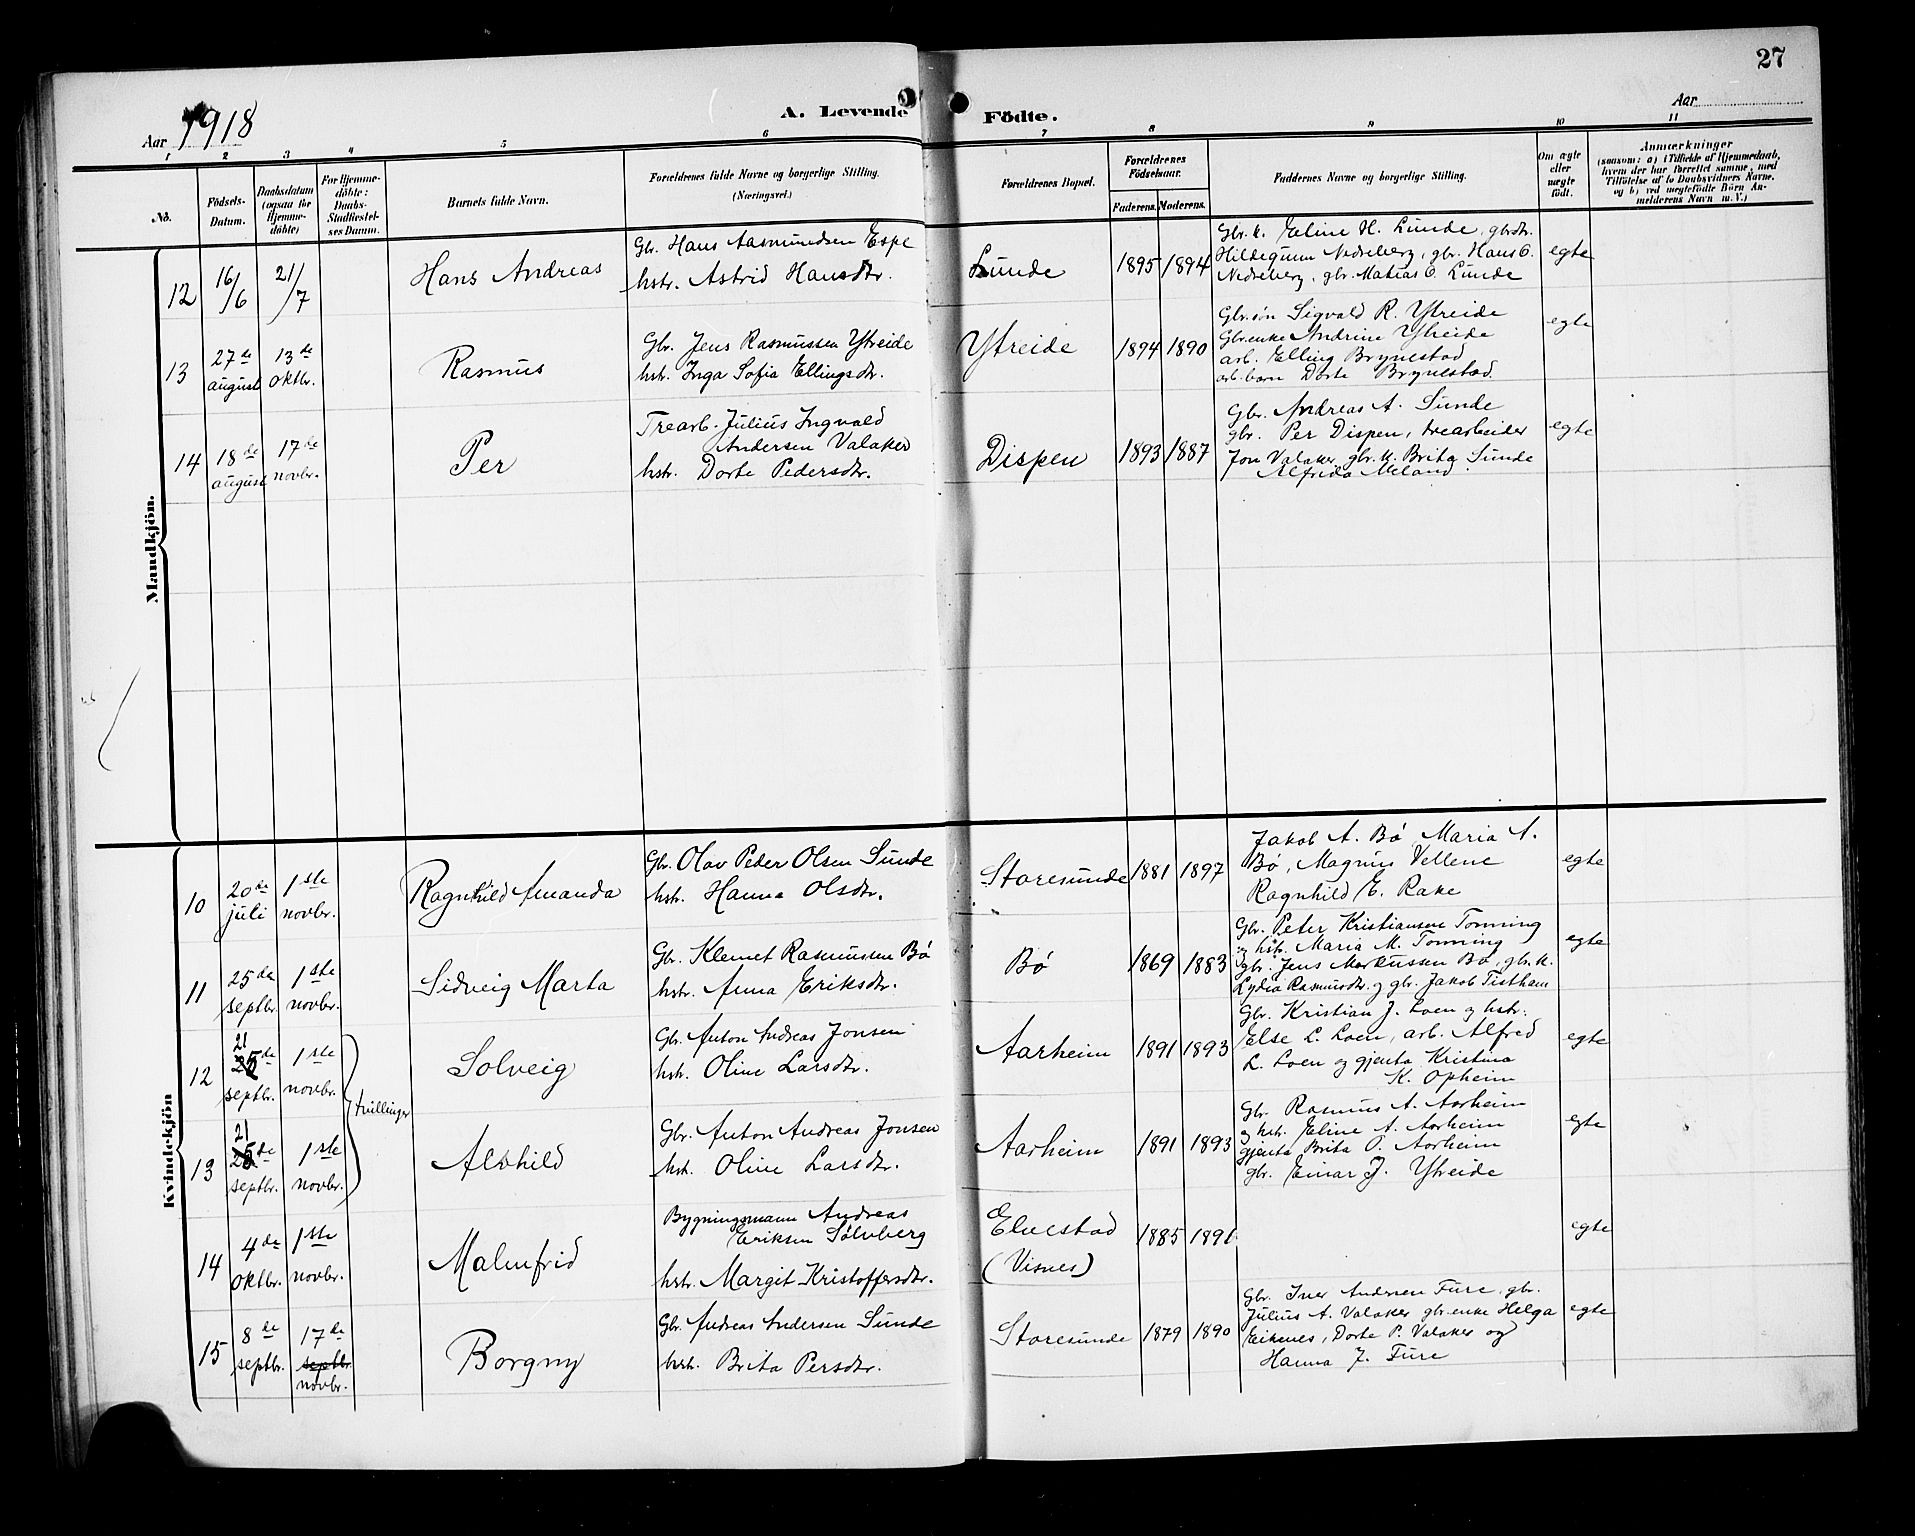 27
Aar 1918
A. Levende Fødte.
Aar
1 2 3 4 5 6 7 8 9 10 11
No.
Fødsels-Datum.
Daabsdatum (ogsaa for Hjemme-døbte)
For Hjemme-døbte: Daabs-Stadfæstel-ses Datum.
Barnets fulde Navn.
Forældrenes fulde Navne og borgerlige Stilling.
(Næringsvei.)
Forældrenes Bopæl.
Forældrenes Fødselsaar.
Faderens. Moderens.
Faddernes Navne og borgerlige Stilling.
Om ægte eller uægte født.
Anmærkninger
(saasom: a) i Tilfælde af Hjemmedaab,
hvem der har forrettet samme, med
Tilføielse af to Daabsvidners Navne,
og b) ved uægtefødte Børn An-
melderens Navn m. V.)
Mandkjøn.
12 16/6 21/7 Hans Andreas
Gbr. Hans Aasmundsen Espe
hstr. Astrid Hansdtr.
Lunde 1895 1894
Gbr. k. Eline H. Lunde, gbrdtr.
Hildegunn Nedreberg, gbr. Hans O.
Nedreberg, gbr. Matias O. Lunde
egte
13 27de august 13de oktbr. Rasmus
Gbr. Jens Rasmussen Ytreide
hstr. Inga Sofia Ellingsdtr.
Ytreide 1894 1890
Gbr.søn Sigvald R. Ytreide
Gbr.enke Andrine Ytreide
arb. Elling Brynestad
arb. barn Dorte Brynestad.
egte
14 18de august 17de novbr. Per
Trearb. Julius Ingvald
Andersen Valaker
hstr. Dorte Pedersdtr.
Dispen 1893 1887
Gbr. Andreas A. Sunde
gbr. Per Dispen, trearbeider
Jon Valaker, gbr. k. Brita Sunde
Alfrida Meland
egte
Kvindekjøn
10 20de juli 1ste novbr. Ragnhild Amanda
Gbr. Olav Peder Olsen Sunde
hstr. Hanna Olsdtr.
Storesunde 1881 1897
Jakob A. Bø, Maria A.
Bø, Magnus Vellene
Ragnhild E. Rake
egte
11 25de septbr. 1ste novbr. Sidveig Marta
Gbr. Klemet Rasmussen Bø
hstr. Anna Eriksdtr.
Bø 1869 1883
Gbr. Peter Kristiansen Tonning
og hstr. Maria M. Tonning
gbr. Jens Markussen Bø, gbr. k.
Lydia Rasmusdtr. og gbr. Jakob Tistham
egte
12 21 25de septbr. 1ste novbr. Solveig
tvillinger
Gbr. Anton Andreas Jonsen
hstr. Oline Larsdtr.
Aarheim 1891 1893
Gbr. Kristian J. Loen og hstr.
Else L. Loen, arb. Alfred
L. Loen og gjenta Kristina
K. Opheim
egte
13 21 25de septbr. 1ste novbr. Alvhild
Gbr. Anton Andreas Jonsen
hstr. Oline Larsdtr.
Aarheim 1891 1893
Gbr. Rasmus A. Aarheim
og hstr. Eline A. Aarheim
gjenta Brita O. Aarheim
gbr. Einar J. Ytreide
egte
14 4de oktbr. 1ste novbr. Malmfrid
Bygningsmann Andreas
Eriksen Sølvberg
hstr. Margit Kristoffersdtr.
Elvestad
(Visnes) 1885 1891
egte
15 8de septbr. 17de septbr. novbr. Borgny
Gbr. Andreas Andersen Sunde
hstr. Brita Persdtr.
Storesunde 1879 1890
Gbr. Iver Andersen Fure, gbr.
Julius A. Valaker, gbr.enke Helga
Eikenes, Dorte P. Valaker og
Hanna J. Fure
egte